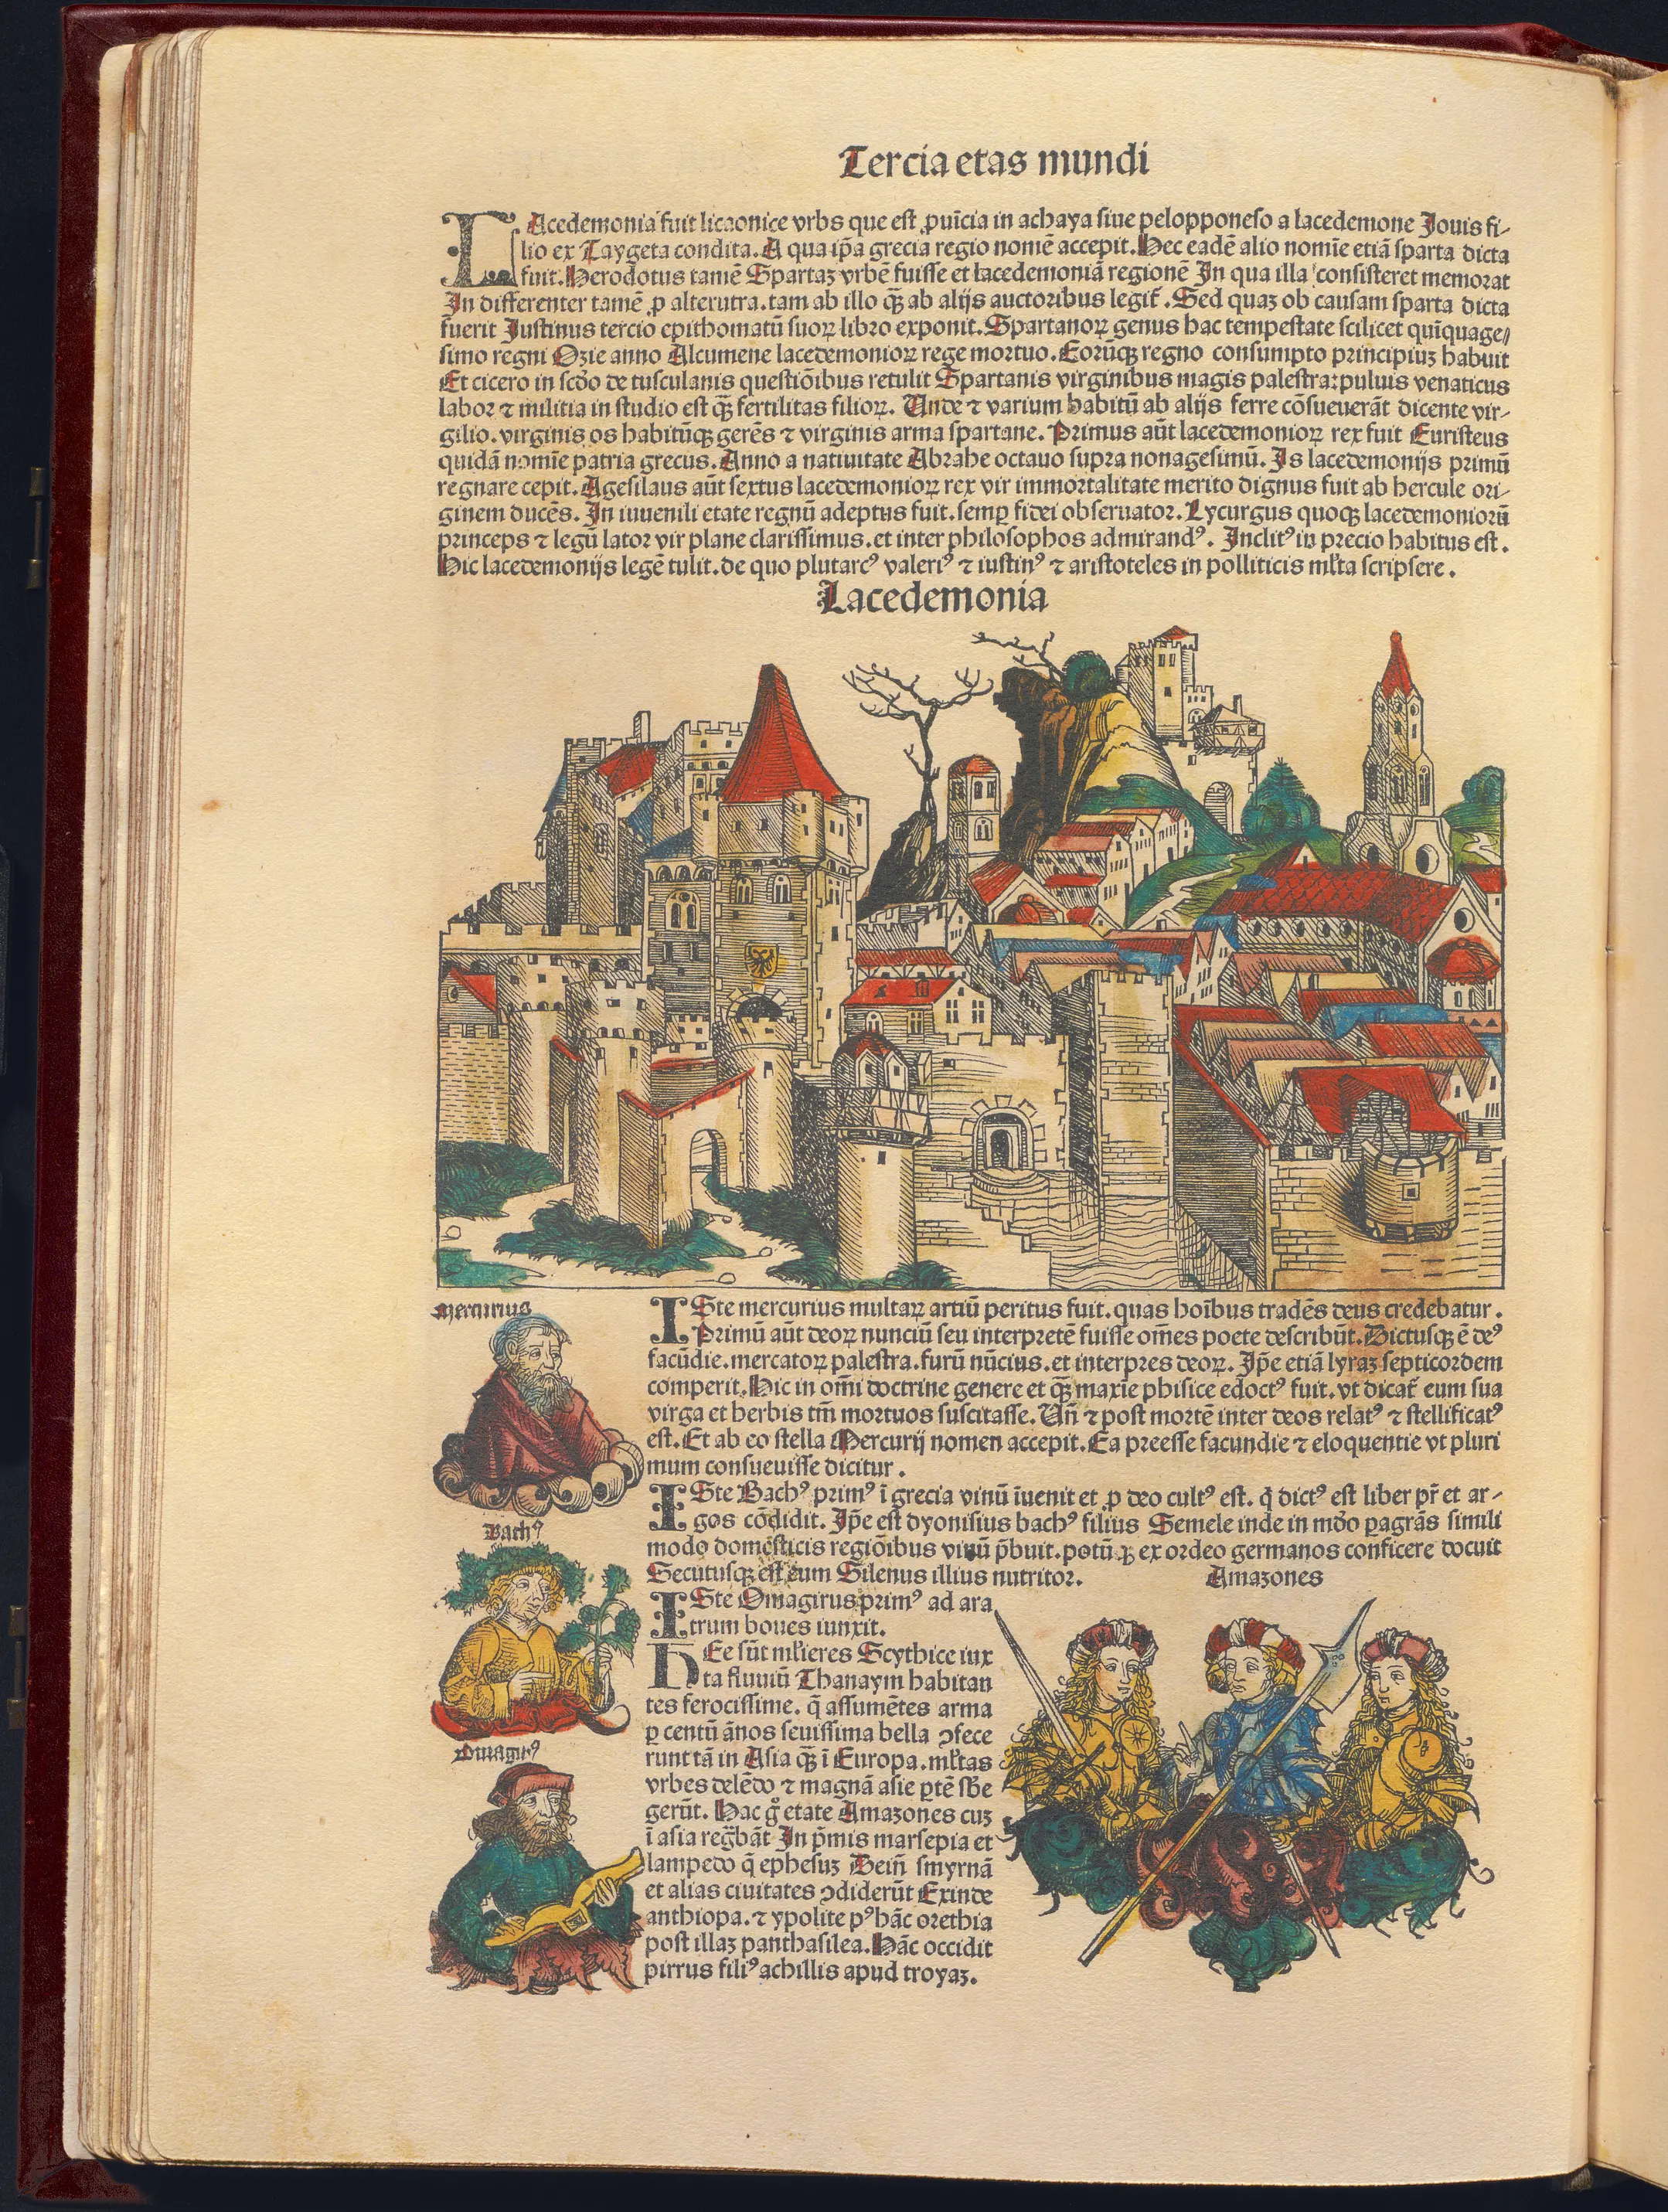 Tercia etas mundi
LAcedemonia fuit licaonice vrbs que est ꝓuicia in achaya siue pelopponeso a lacedemone Jouis fi-
lio ex Taygeta condita. A qua ip̄a grecia regio nomē accepit. Hec eadē alio nomīe etiā sparta dicta
fuit. Herodotus tamē Spartaꝫ vrbē fuisse et lacedemoniā regionē In qua illa consisteret memorat
In differenter tamē ꝓ alterutra. tam ab illo qꝫ̄ ab alijs auctoribus legit̄. Sed quaꝫ ob causam sparta dicta
fuerit Justinus tercio epithomatū suoꝝ libro exponit. Spartanoꝝ genus hac tempestate scilicet quīquage-
simo regni Ozie anno Alcumene lacedemonioꝝ rege mortuo. Eorūqꝫ regno consumpto principiuꝫ habuit
Et cicero in scd̄o de tusculanis questiōibus retulit Spartanis virginibus magis palestra: puluis venaticus
labor ⁊ militia in studio est qꝫ̄ fertilitas filioꝝ. Unde ⁊ varium habitū ab alijs ferre cōsueuerāt dicente vir-
gilio. virginis os habitūqꝫ gerēs ⁊ virginis arma spartane. Primus aūt lacedemonioꝝ rex fuit Euristeus
quidā nomīe patria grecus. Anno a natiuitate Abrahe octauo supra nonagesimū. Is lacedemonijs primū
regnare cepit. Agesilaus aūt sextus lacedemonioꝝ rex vir immortalitate merito dignus fuit ab hercule ori-
ginem ducēs. In iuuenili etate regnū adeptus fuit. semꝑ fidei obseruator. Lycurgus quoqꝫ lacedemoniorū
princeps ⁊ legū lator vir plane clarissimus. et inter philosophos admirandꝰ. Inclitꝰ in precio habitus est.
Hic lacedemonijs legē tulit. de quo plutarcꝰ valeriꝰ ⁊ iustinꝰ ⁊ aristoteles in polliticis ml̄ta scripsere.
Lacedemonia
Mercurius
ISte mercurius multaꝝ artiū peritus fuit. quas hoībus tradēs deus credebatur.
Primū aūt deoꝝ nunciū seu interpretē fuisse om̄es poete describūt. Dictusqꝫ ē deꝰ
facūdie. mercatoꝝ palestra. furū nūcius. et interpres deoꝝ. Ip̄e etiā lyraꝫ septicordem
comperit. Hic in om̄i doctrine genere et qꝫ̄ maxīe phisice edoctꝰ fuit. vt dicat̄ eum sua
virga et herbis tm̄ mortuos suscitasse. Un̄ ⁊ post mortē inter deos relatꝰ ⁊ stellificatꝰ
est. Et ab eo stella Mercurij nomen accepit. Ea preesse facundie ⁊ eloquentie vt pluri
mum consueuisse dicitur.
Bachꝰ
ISte Bachꝰ primꝰ ī grecia vinū īuenit et ꝓ deo cultꝰ est. q̄ dictꝰ est liber pr̄ et ar-
gos cōdidit. Ip̄e est dyonisius bachꝰ filius Semele inde in mōo ꝑagrās simili
modo domesticis regiōibus vinū p̄buit. potū qꝫ ex ordeo germanos conficere docuit
Secutusqꝫ est eum Silenus illius nutritor.
Omagirꝰ
ISte Omagirus primꝰ ad ara
trum boues iunxit.
Amazones
HEe sūt ml̄ieres Scythice iux
ta fluuiū Thanaym habitan
tes ferocissime. q̄ assumētes arma
ꝑ centū ānos seuissima bella ɔfece
runt tā in Asia qꝫ̄ ī Europa. ml̄tas
vrbes delēdo ⁊ magnā asie ꝑtē sb̄e
gerūt. Hac g̊ etate Amazones cuꝫ
ī asia regb̄āt In p̄mis marsepia et
lampedo q̄ ephesuꝫ Dein̄ smyrnā
et alias ciuitates ɔdiderūt Exinde
anthiopa. ⁊ ypolite pꝰ hāc orethia
post illaꝫ panthasilea. Hāc occidit
pirrus filiꝰ achillis apud troyaꝫ.